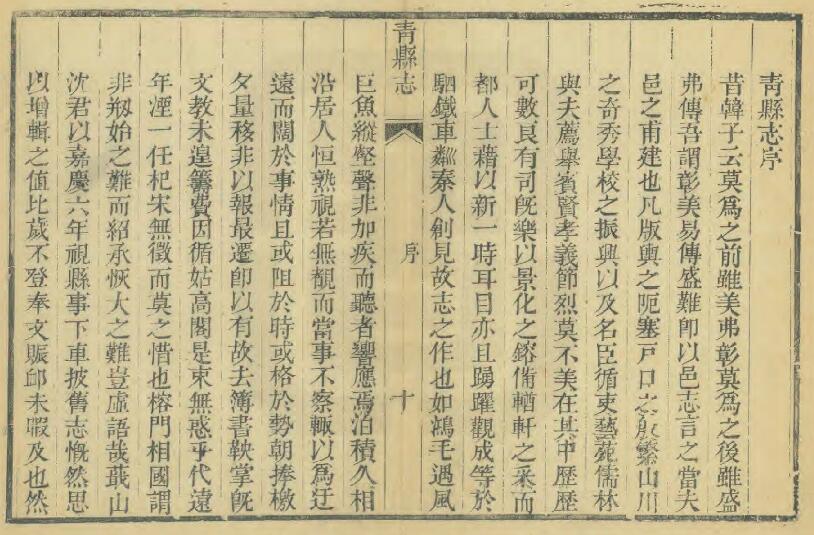 青縣志序
昔韓子云莫爲之前雖美弗彰莫爲之後雖盛
弗傳吾謂彰美易傳盛難卽以邑志言之當夫
邑之甫建也凡版輿之阨塞戸口之殷繁山川
之奇秀學校之振興以及名臣循吏藝苑儒林
與夫薦舉賓賢孝義節烈莫不美在其中歷歷
可數良有司旣樂以景化之鎔備輶軒之采而
都人士藉以新一時耳目亦且踴躍觀成等於
駟鐵車鄰秦人創見故志之作也如鴻毛遇風
青縣志
序
十
巨魚縱壑聲非加疾而聽者響應焉洎積久相
沿居人恒熟視若無覩而當事不察輒以爲迂
遠而闊於事情且或阻於時或格於勢朝捧檄
夕量移非以報最遷卽以有故去簿書鞅掌旣
文教未遑籌費因循姑高閣是束無惑乎代遠
年湮一任杞宋無徵而莫之惜也榕門相國謂
非剏始之難而紹承恢大之難豈虛語哉蕺山
沈君以嘉慶六年視縣事下車披舊志慨然思
以增輯之值比歲不登奉文賑卹未暇及也然